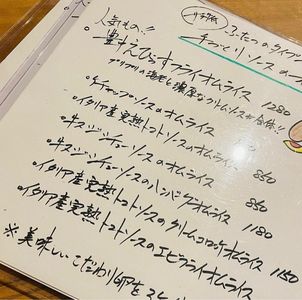 ふたつのタイプ
手づくりソースの
人気もの!!
。豊えびすフライオムライス 1280
プリプリの海老と濃厚なトマトソースが合体!!
。ケチャップソースのオムライス
。イタリア産完熟トマトソースのオムライス 850
。牛スジシチューソースのオムライス 850
。牛スジシチューソースのハンバーグオムライス
。イタリア産完熟トマトソースのクリームコロッケオムライス 1180
。イタリア産完熟トマトソースのエビフライオムライス 1150
※美味しいこだわり卵